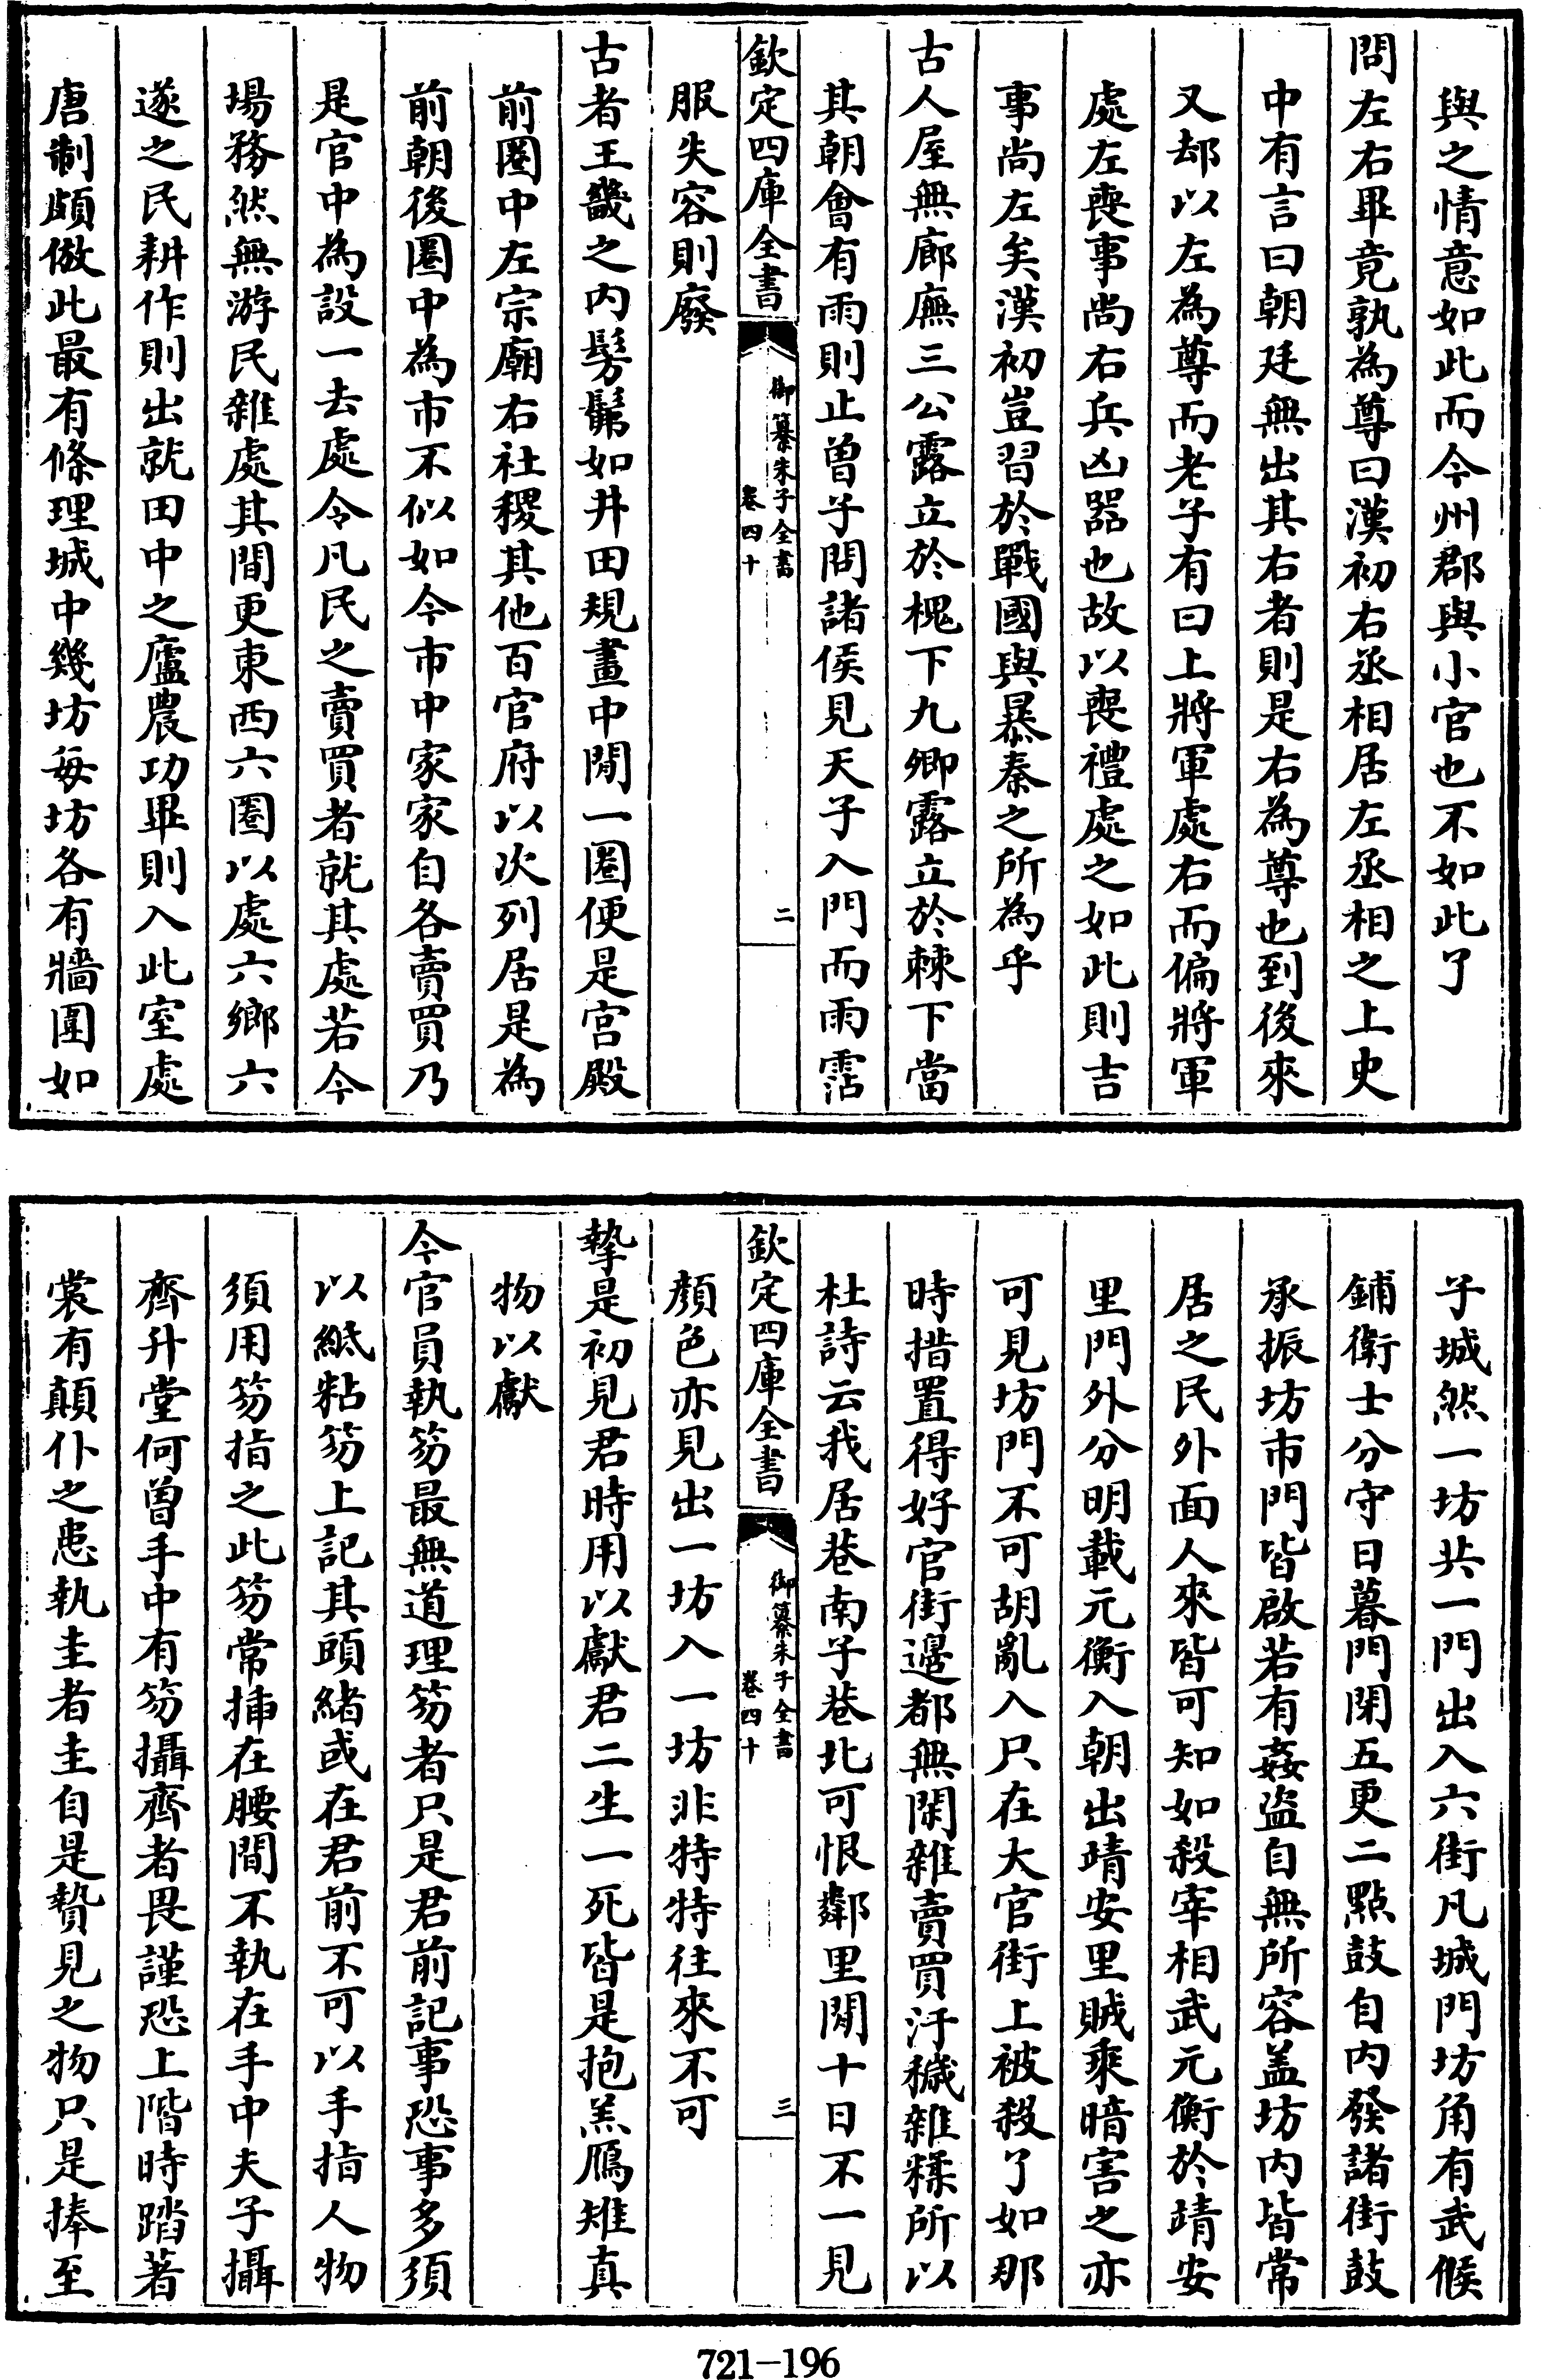 與之情意如此而今州郡與小官也不如此了
問左右畢竟孰為尊曰漢初右丞相居左丞相之上史
中有言曰朝廷無出其右者則是右為尊也到後來
又却以左為尊而老子有曰上將軍處右而偏將軍
處左喪事尚右兵凶器也故以喪禮處之如此則吉
事尚左矣漢初豈習於戰國與暴秦之所為乎
古人屋無廊廡三公露立於槐下九卿露立於棘下當
其朝會有雨則止曾子問諸侯見天子入門而雨霑
欽定四庫全書
御纂朱子全書
卷四十
二
服失容則廢
古者王畿之內髣髴如井田規畫中間一圈便是宮殿
前圈中左宗廟右社稷其他百官府以次列居是為
前朝後圈中為市不似如今市中家家自各賣買乃
是官中為設一去處令凡民之賣買者就其處若今
場務然無游民雜處其間更東西六圈以處六鄉六
遂之民耕作則出就田中之廬農功畢則入此室處
唐制頗倣此最有條理城中幾坊每坊各有牆圍如
子城然一坊共一門出入六街凡城門坊角有武候
鋪衛士分守日暮門閉五更二點鼓自內發諸街鼓
承振坊市門皆啟若有姦盜自無所容盖坊內皆常
居之民外面人來皆可知如殺宰相武元衡於靖安
里門外分明載元衡入朝出靖安里賊乘暗害之亦
可見坊門不可胡亂入只在大官街上被殺了如那
時措置得好官街邊都無閑雜賣買汙穢雜糅所以
杜詩云我居巷南子巷北可恨鄰里間十日不一見
欽定四庫全書
御纂朱子全書
卷四十
三
顏色亦見出一坊入一坊非特特往來不可
摯是初見君時用以獻君二生一死皆是抱羔鴈雉真
物以獻
今官員執笏最無道理笏者只是君前記事恐事多須
以紙粘笏上記其頭緒或在君前不可以手指人物
須用笏指之此笏常揷在腰間不執在手中夫子攝
齊升堂何曾手中有笏攝齊者畏謹恐上階時踏著
裳有顛仆之患執圭者圭自是贄見之物只是捧至
721-196